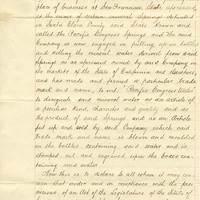 place of business at San Francisco, State aforesaid
is the owner of certain mineral Springs situated
in Santa Clara County said State, known and
called the Pacific Congress Springs and the said
Company is now engaged in putting up in bottles
and selling the mineral water derived from said
Springs as is aforesaid owned by said Company in
the markets of the State of California and elsewhere,
and has made and formed a particular trade
mark and name, to wit: "Pacific Congress Water"
to designate said mineral water as an article of
peculiar kind, character and quality and as
the product of said Springs and as an article
put up and sold by said Company, which said
trade mark and name is blown and moulded
in the bottles containing said water and is
stamped, cut, and engraved upon the boxes con-
taining said water.
Now this is to declare to all whom it may con-
cern that under and in accordance with the pro-
visions of an Act of the Legislature of the State of